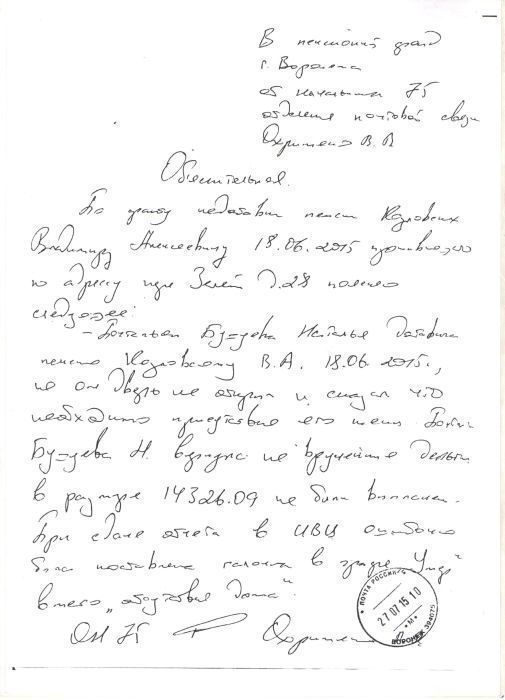 В пенсионный фонд
г. Воронежа
от начальника 75
отделения почтовой связи
Охрименко В. А
Объяснительная.
По факту недоставки пенсии Козловских
Владимиру Алексеевичу 18.06.2015
по адресу пер Зелен д.28 поясняю
следующее:
- Почтальон Бунеева Наталья доставила
пенсию Козловскому В.А. 18.06.2015г.,
но он дверь не открыл и сказал что
необходимо присутствие его жены
Бунеева Н. не врученные деньги
в размере 14326.09 не были выплачены.
При сдаче отчета в ИВЦ ошибочно
была поставлена галочка в графе "Умер"
вместо "отсутствие дома".
ОПС 75 Охрименко
ПОЧТА РОССИИ
27 07 15 10
М
ВОРОНЕЖ 394075